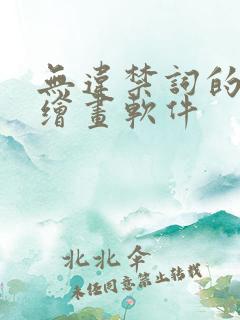 無違禁詞的
繪畫軟件
北北伞
未經同意禁止轉載